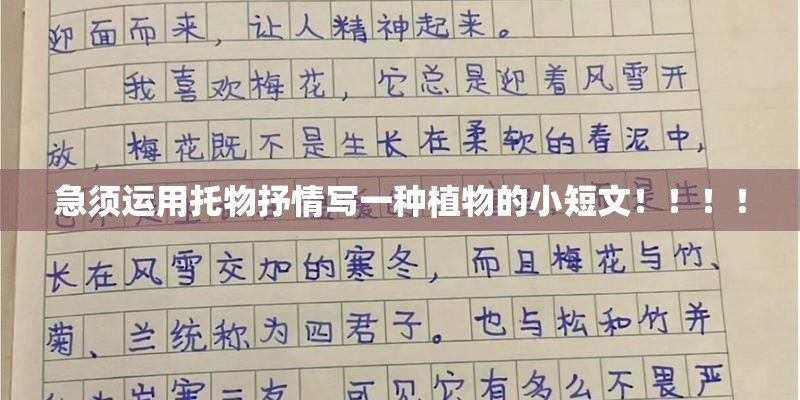 迎面而来，让人精神起来。
我喜欢梅花，它总是迎着风雪开
放，梅花既不是生长在柔软的春泥中，
急须运用托物抒情写一种植物的小短文！！！！
长在风雪交加的寒冬，而且梅花与竹、
菊、兰统称为四君子。也与松和竹并
岁寒三友，可见它有多么不畏严